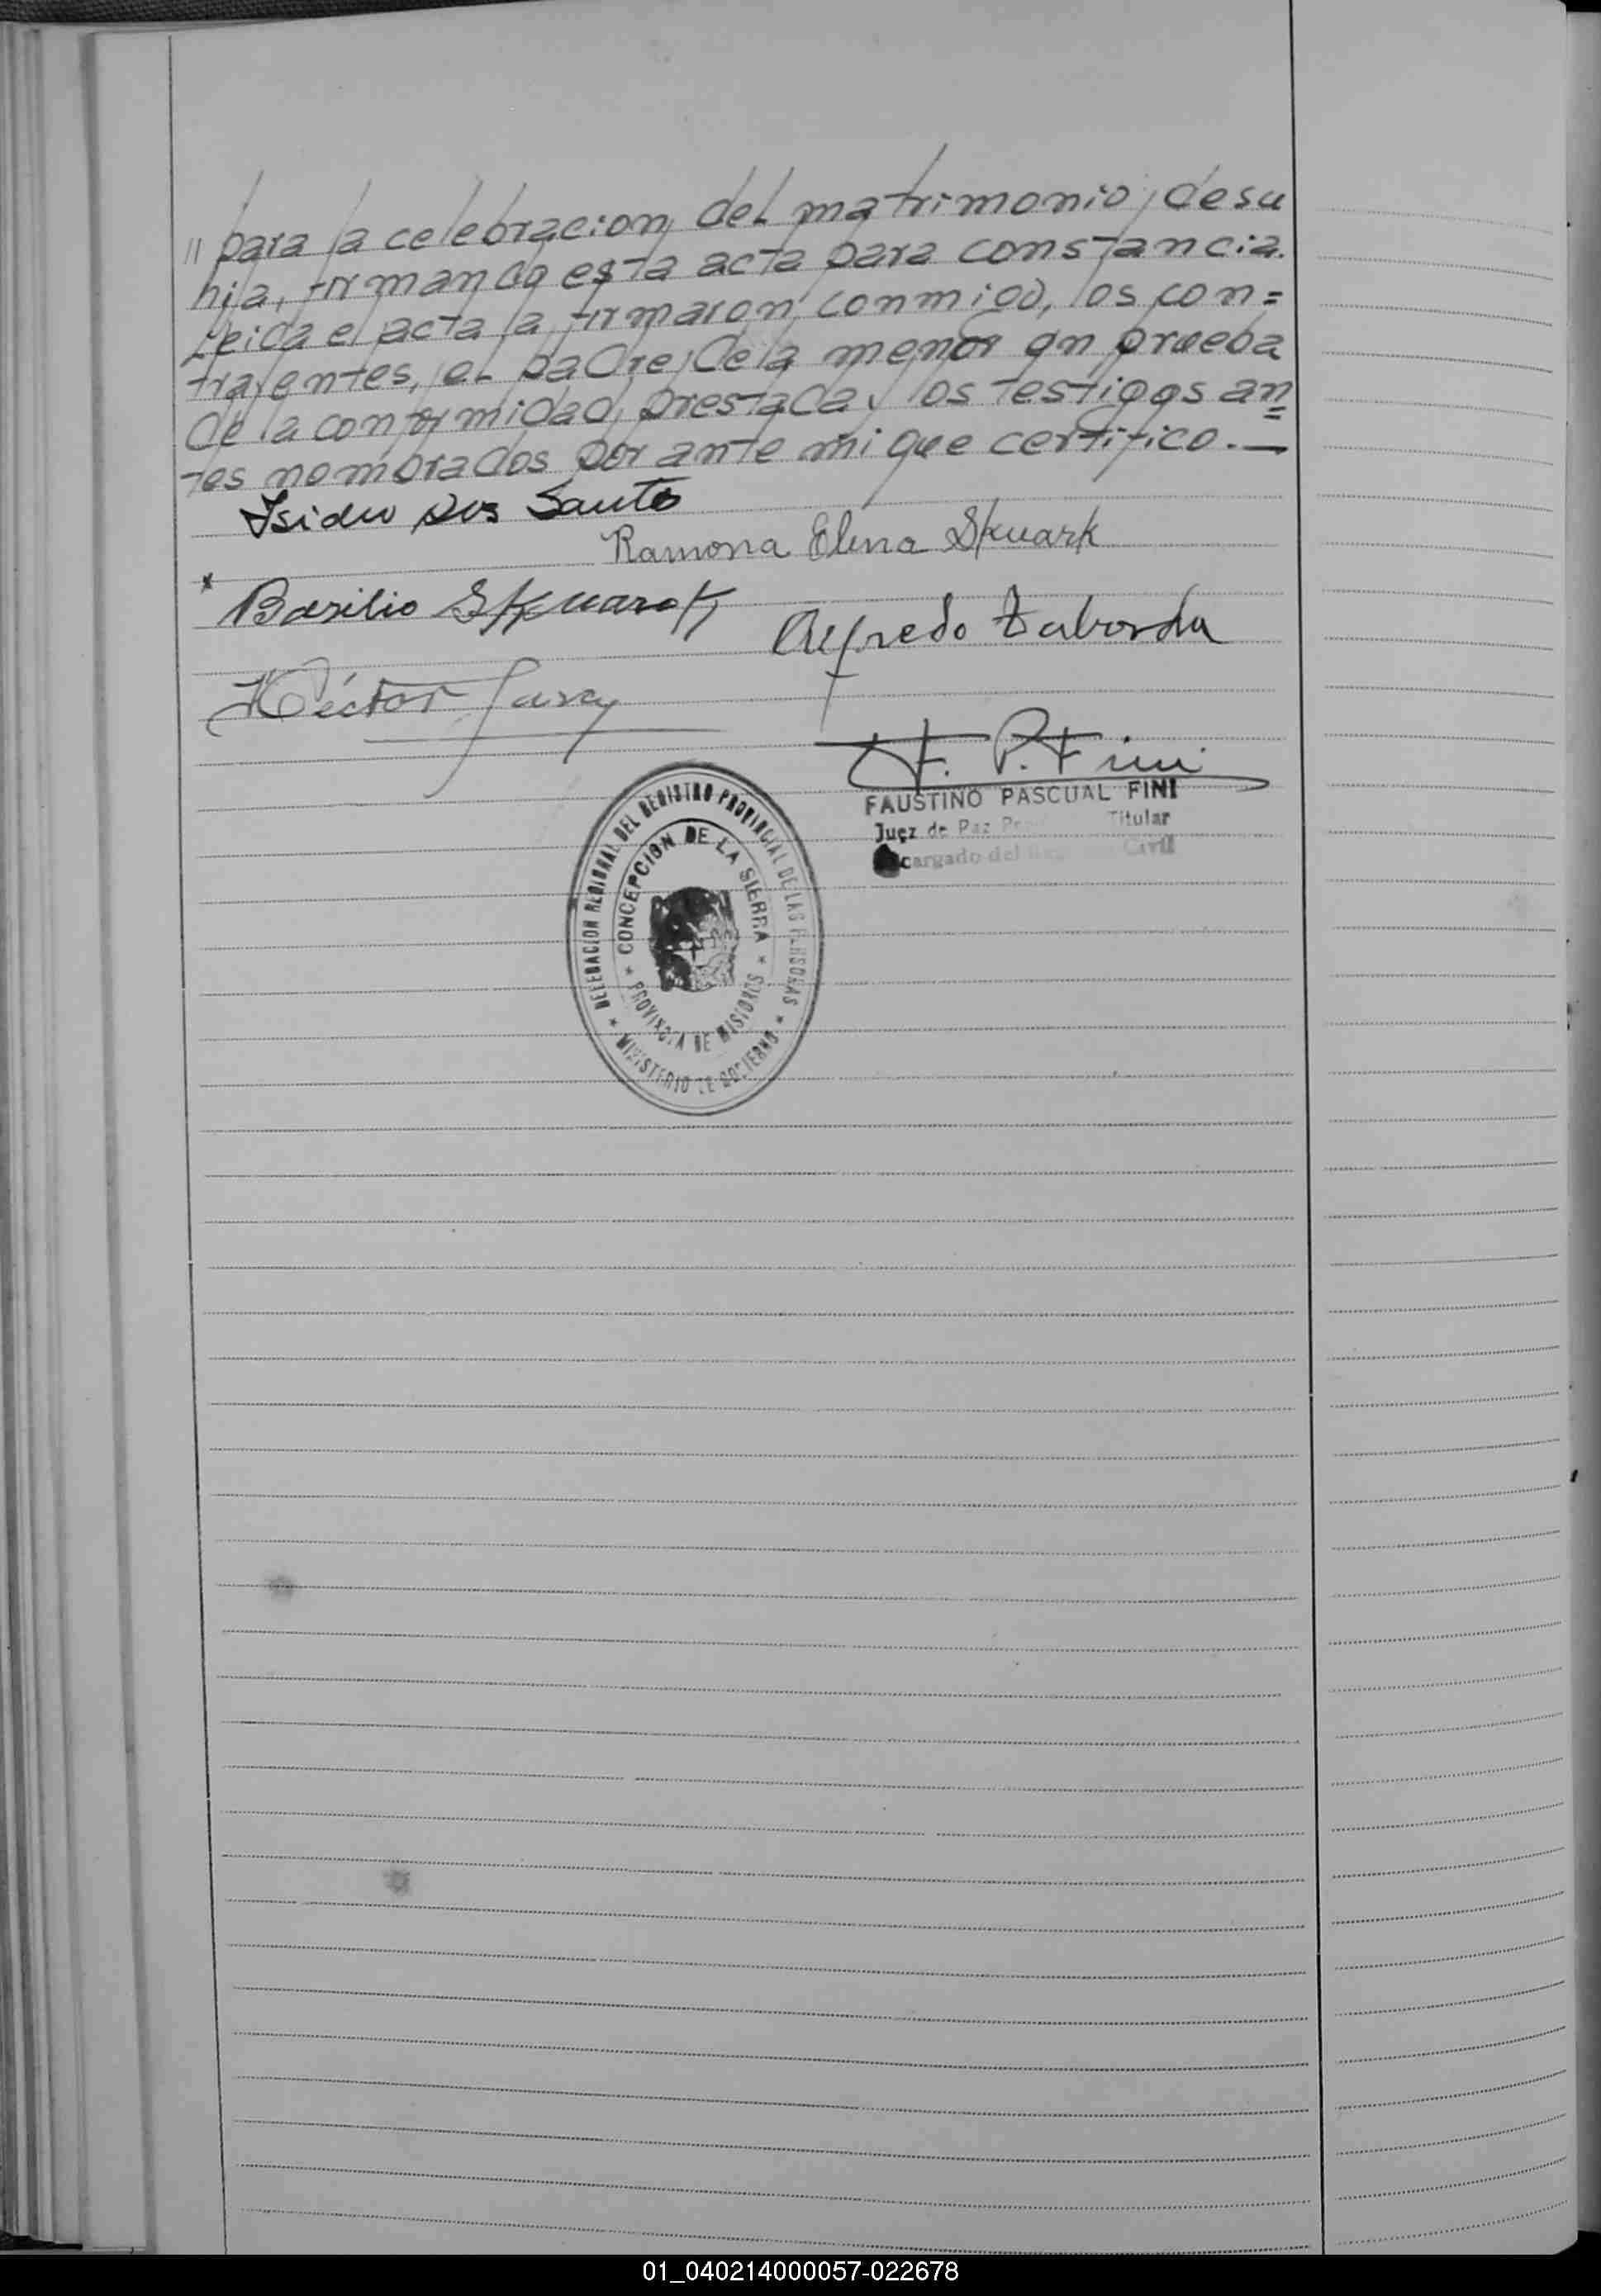 // para la celebracion del matrimonio, de su
hija, firmando esta acta para constancia.
Leida el acta la firmaron conmigo, los con=
trayentes, el padre de la menor en prueba
de la conformidad prestada y los testigos an=
tes nombrados por ante mi que certifico.—
Isidro Dos Santos
Ramona Elena Skuark
x
Basilio Skuark
Alfredo Taborda
Héctor Garay
F. P. Fini
FAUSTINO PASCUAL FINI
Juez de Paz Titular
cargado del Civil
DELEGACION REGIONAL DEL REGISTRO PROVINCIAL DE LAS PERSONAS
* MINISTERIO DE GOBIERNO *
CONCEPCION DE LA SIERRA
* PROVINCIA DE MISIONES *
01_040214000057-022678